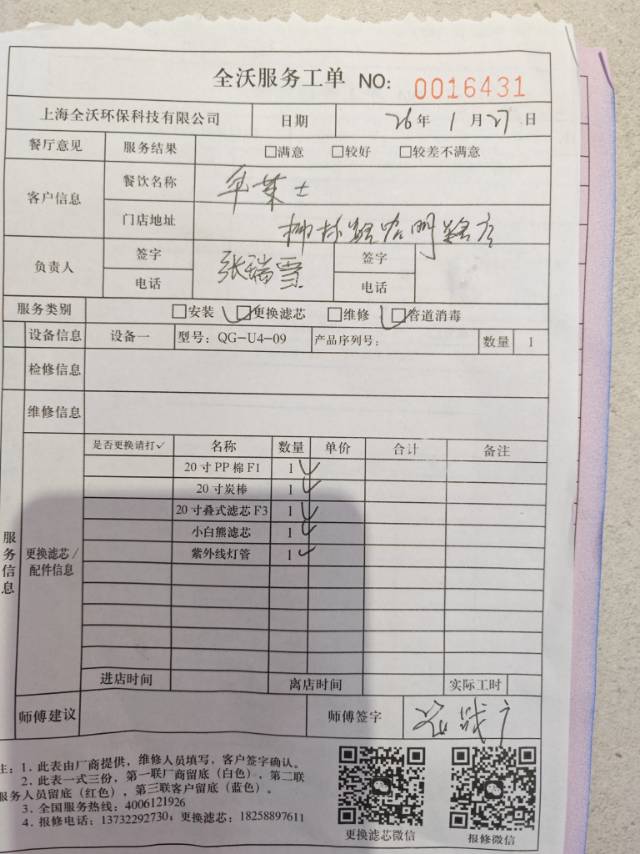 全沃服务工单 NO: 0016431
上海全沃环保科技有限公司 日期 26年 1月 27日
餐厅意见 服务结果 □满意 □较好 □较差不满意
客户信息 餐饮名称
门店地址
负责人 签字 张瑞雪 签字
电话 电话
服务类别 □安装 □更换滤芯 □维修 □管道消毒
设备信息 设备一 型号: QG-U4-09 产品序列号: 数量 1
检修信息
维修信息
服务信息
更换滤芯/配件信息
是否更换请打✓ 名称 数量 单价 合计 备注
20寸PP棉F1 1 ✓
20寸炭棒 1 ✓
20寸叠式滤芯F3 1 ✓
小白熊滤芯 1 ✓
紫外线灯管 1 ✓
进店时间 离店时间 实际工时
师傅建议 师傅签字
注: 1. 此表由厂商提供，维修人员填写，客户签字确认。
2. 此表一式三份，第一联厂商留底（白色），第二联
服务人员留底（红色），第三联客户留底（蓝色）。
3. 全国服务热线: 4006121926
4. 报修电话: 13732292730; 更换滤芯: 18258897611
更换滤芯微信 报修微信